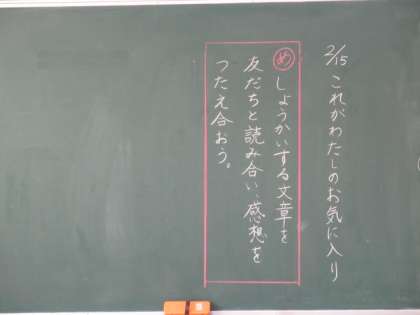 2/15 これがわたしのお気に入り
め しょうかいする文章を
友だちと読み合い、感想を
つたえ合おう。